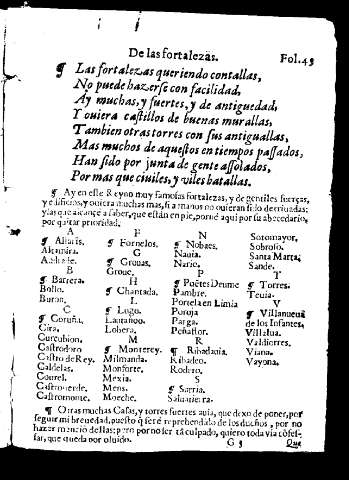 De las fortalezas. Fol.45
¶ Las fortalezas queriendo contallas,
No puede hazerse con facilidad,
Ay muchas, y fuertes, y de antiguedad,
Y ouiera castillos de buenas murallas,
Tambien otras torres con sus antiguallas,
Mas muchos de aquestos en tiempos passados,
Han sido por junta de gente assolados,
Por mas que ciuiles, y viles batallas.
¶ Ay en este Reyno muy famosas fortalezas, y de gentiles fuerças,
y edificios, y ouiera muchas mas, si a manos no ouieran sido derriuadas;
y las que alcançè a saber, que están en pie, porné aqui por su abecedario,
por quitar prioridad.
A
¶ Altaris.
Altamira.
B
¶ Barrera.
Bollo.
Buron.
C
¶ Coruña,
Cira.
Curcubion.
Castrodoro
Castro de Rey.
Caldelas.
Courel.
Castrouerde.
Castromonte.
F
¶ Fornelos.
G
¶ Grouas.
Groue.
H
¶ Chantada.
L
¶ Lugo.
Lantañoo.
Lobera.
M
¶ Monterey.
Milmanda.
Monforte.
Mexia.
Mens.
Moeche.
N
¶ Nobaes.
Nauia.
Nario.
P
¶ Poetes Deume
Pambre.
Portela en Limia
Poroja
Parga.
Peñaflor.
R
¶ Ribadauia.
Ribadeo.
Rodero.
S
¶ Sarria.
Saluatierra.
Sotomayor.
Sobroso.
Santa Marta;
Sande.
T
¶ Torres.
Teuia.
V
¶ Villanueua
de los Infantes,
Villalua.
Valdierres.
Viana.
Vayona.
¶ Otras muchas Casas, y torres fuertes auia, que dexo de poner, por
seguir mi breuedad, puesto q̃ seré reprehendido de los dueños, por no
hazer menciõ dellas: pero por no ser tã culpado, quiero toda via cõfes-
sar, que queda por oluido.
G 5 Que